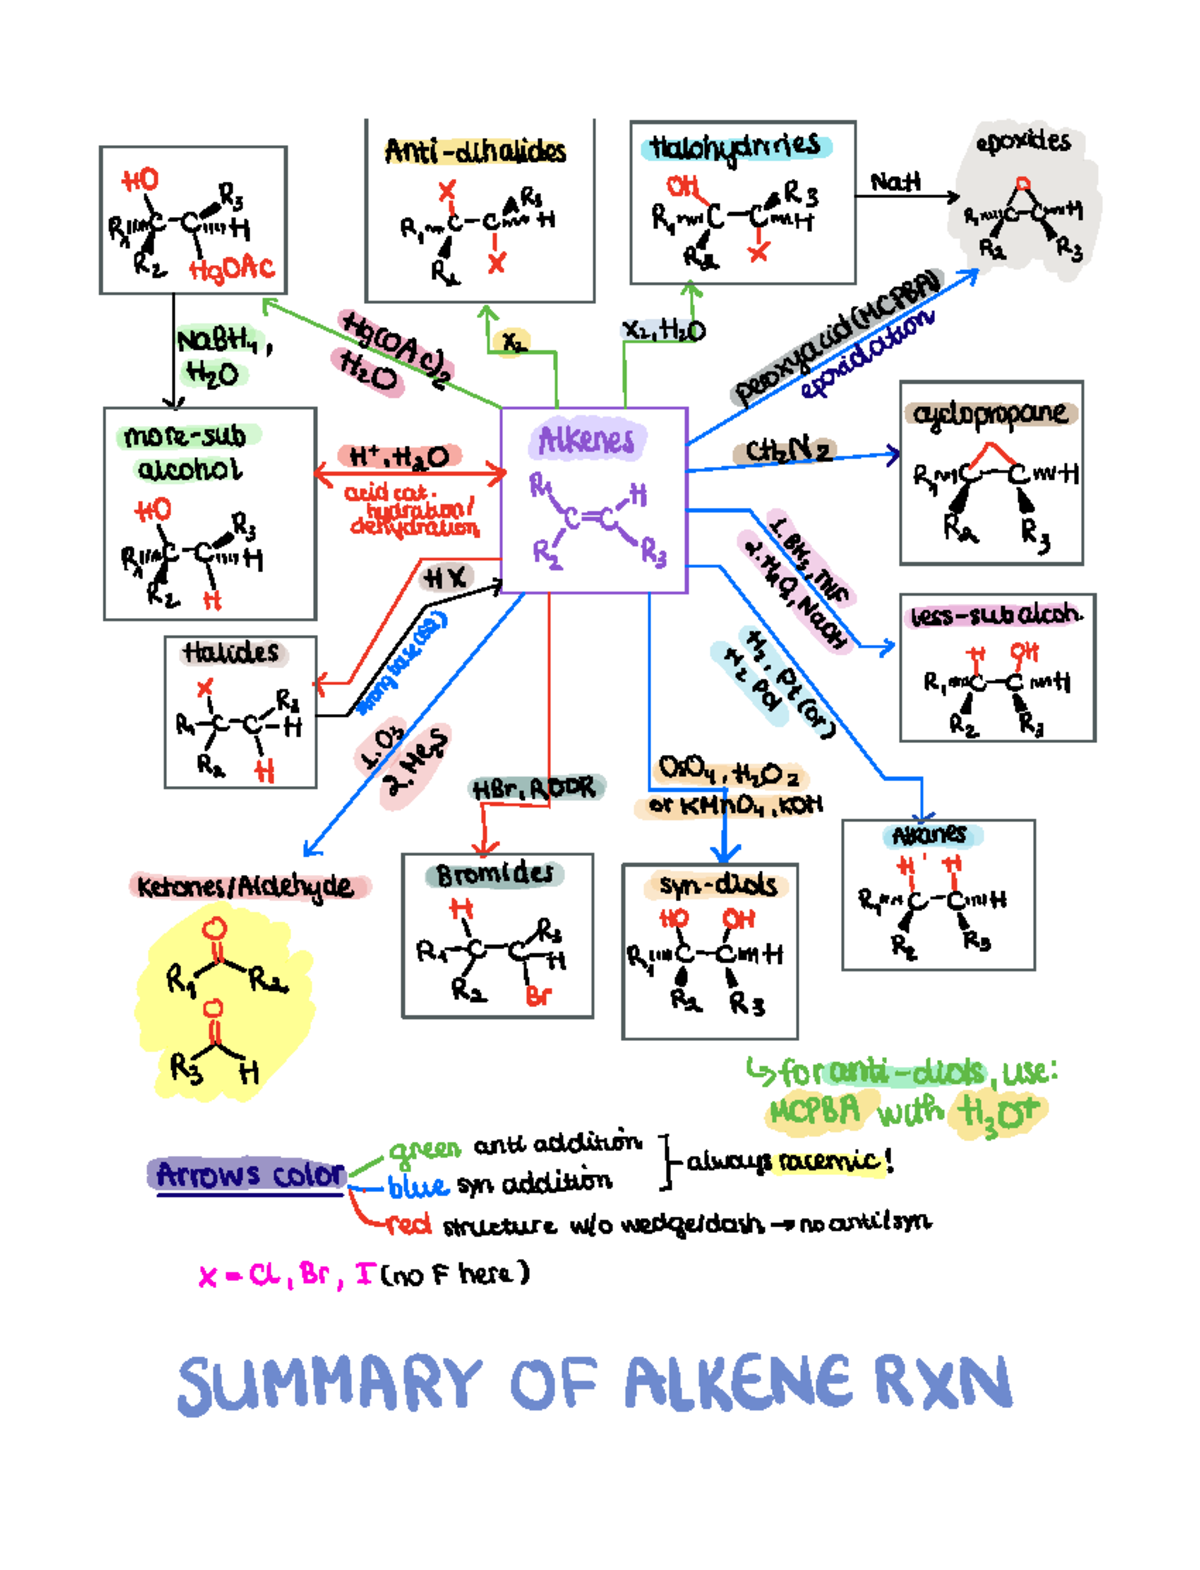 Anti-dihalides
X
R₁
C
C
R₃
H
R₂
X
Halohydrines
OH
R₁
C
C
R₃
H
R₂
X
NaH
epoxides
O
R₁
C
C
H
R₂
R₃
HO
R₁
C
C
R₃
H
R₂
HgOAc
NaBH₄,
H₂O
Hg(OAc)₂
H₂O
X₂
X₂, H₂O
peroxyacid (MCPBA)
epoxidation
more-sub
alcohol
HO
R₁
C
C
R₃
H
R₂
H
H⁺, H₂O
acid cat.
hydration/
dehydration
Alkenes
R₁
H
C=C
R₂
R₃
CH₂N₂
cyclopropane
R₁
C
C
H
R₂
R₃
1. BH₃, THF
2. H₂O₂, NaOH
less-sub alcoh.
H
OH
R₁
C
C
H
R₂
R₃
HX
strong base (E2)
Halides
X
R₁
C
C
R₃
H
R₂
H
1. O₃
2. Me₂S
H₂, Pt (or)
H₂ Pd
HBr, ROOR
OsO₄, H₂O₂
or KMnO₄, KOH
Alkanes
H
H
R₁
C
C
H
R₂
R₃
Ketones/Aldehyde
O
R₁
R₂
O
R₃
H
Bromides
H
R₁
C
C
R₃
H
R₂
Br
syn-diols
HO
OH
R₁
C
C
H
R₂
R₃
↳ for anti-diols, use:
MCPBA with H₃O⁺
Arrows color
green anti addition
blue syn addition
always racemic!
red structure w/o wedge/dash → no anti/syn
X = Cl, Br, I (no F here)
SUMMARY OF ALKENE RXN